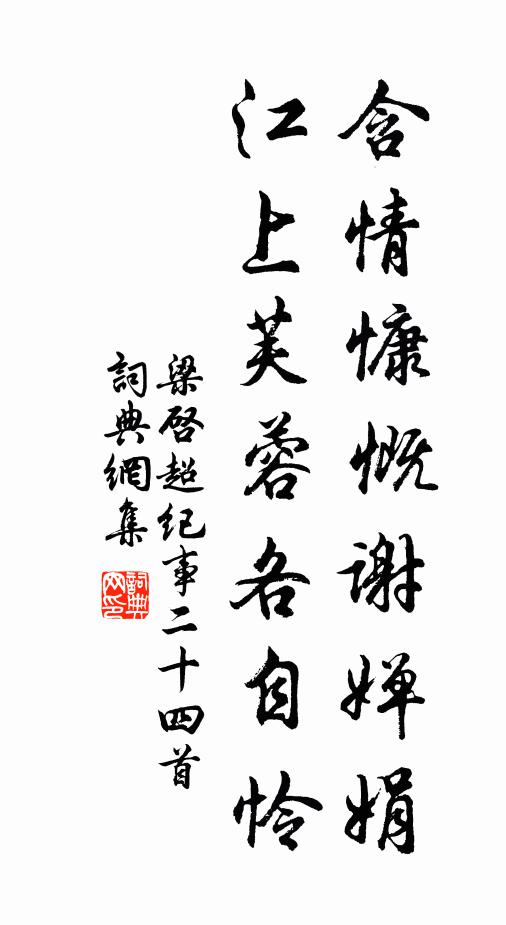 含情慷慨謝嬋娟
江上芙蓉各自怜
梁啓超紀事二十四首
詞典網集
詞典网印